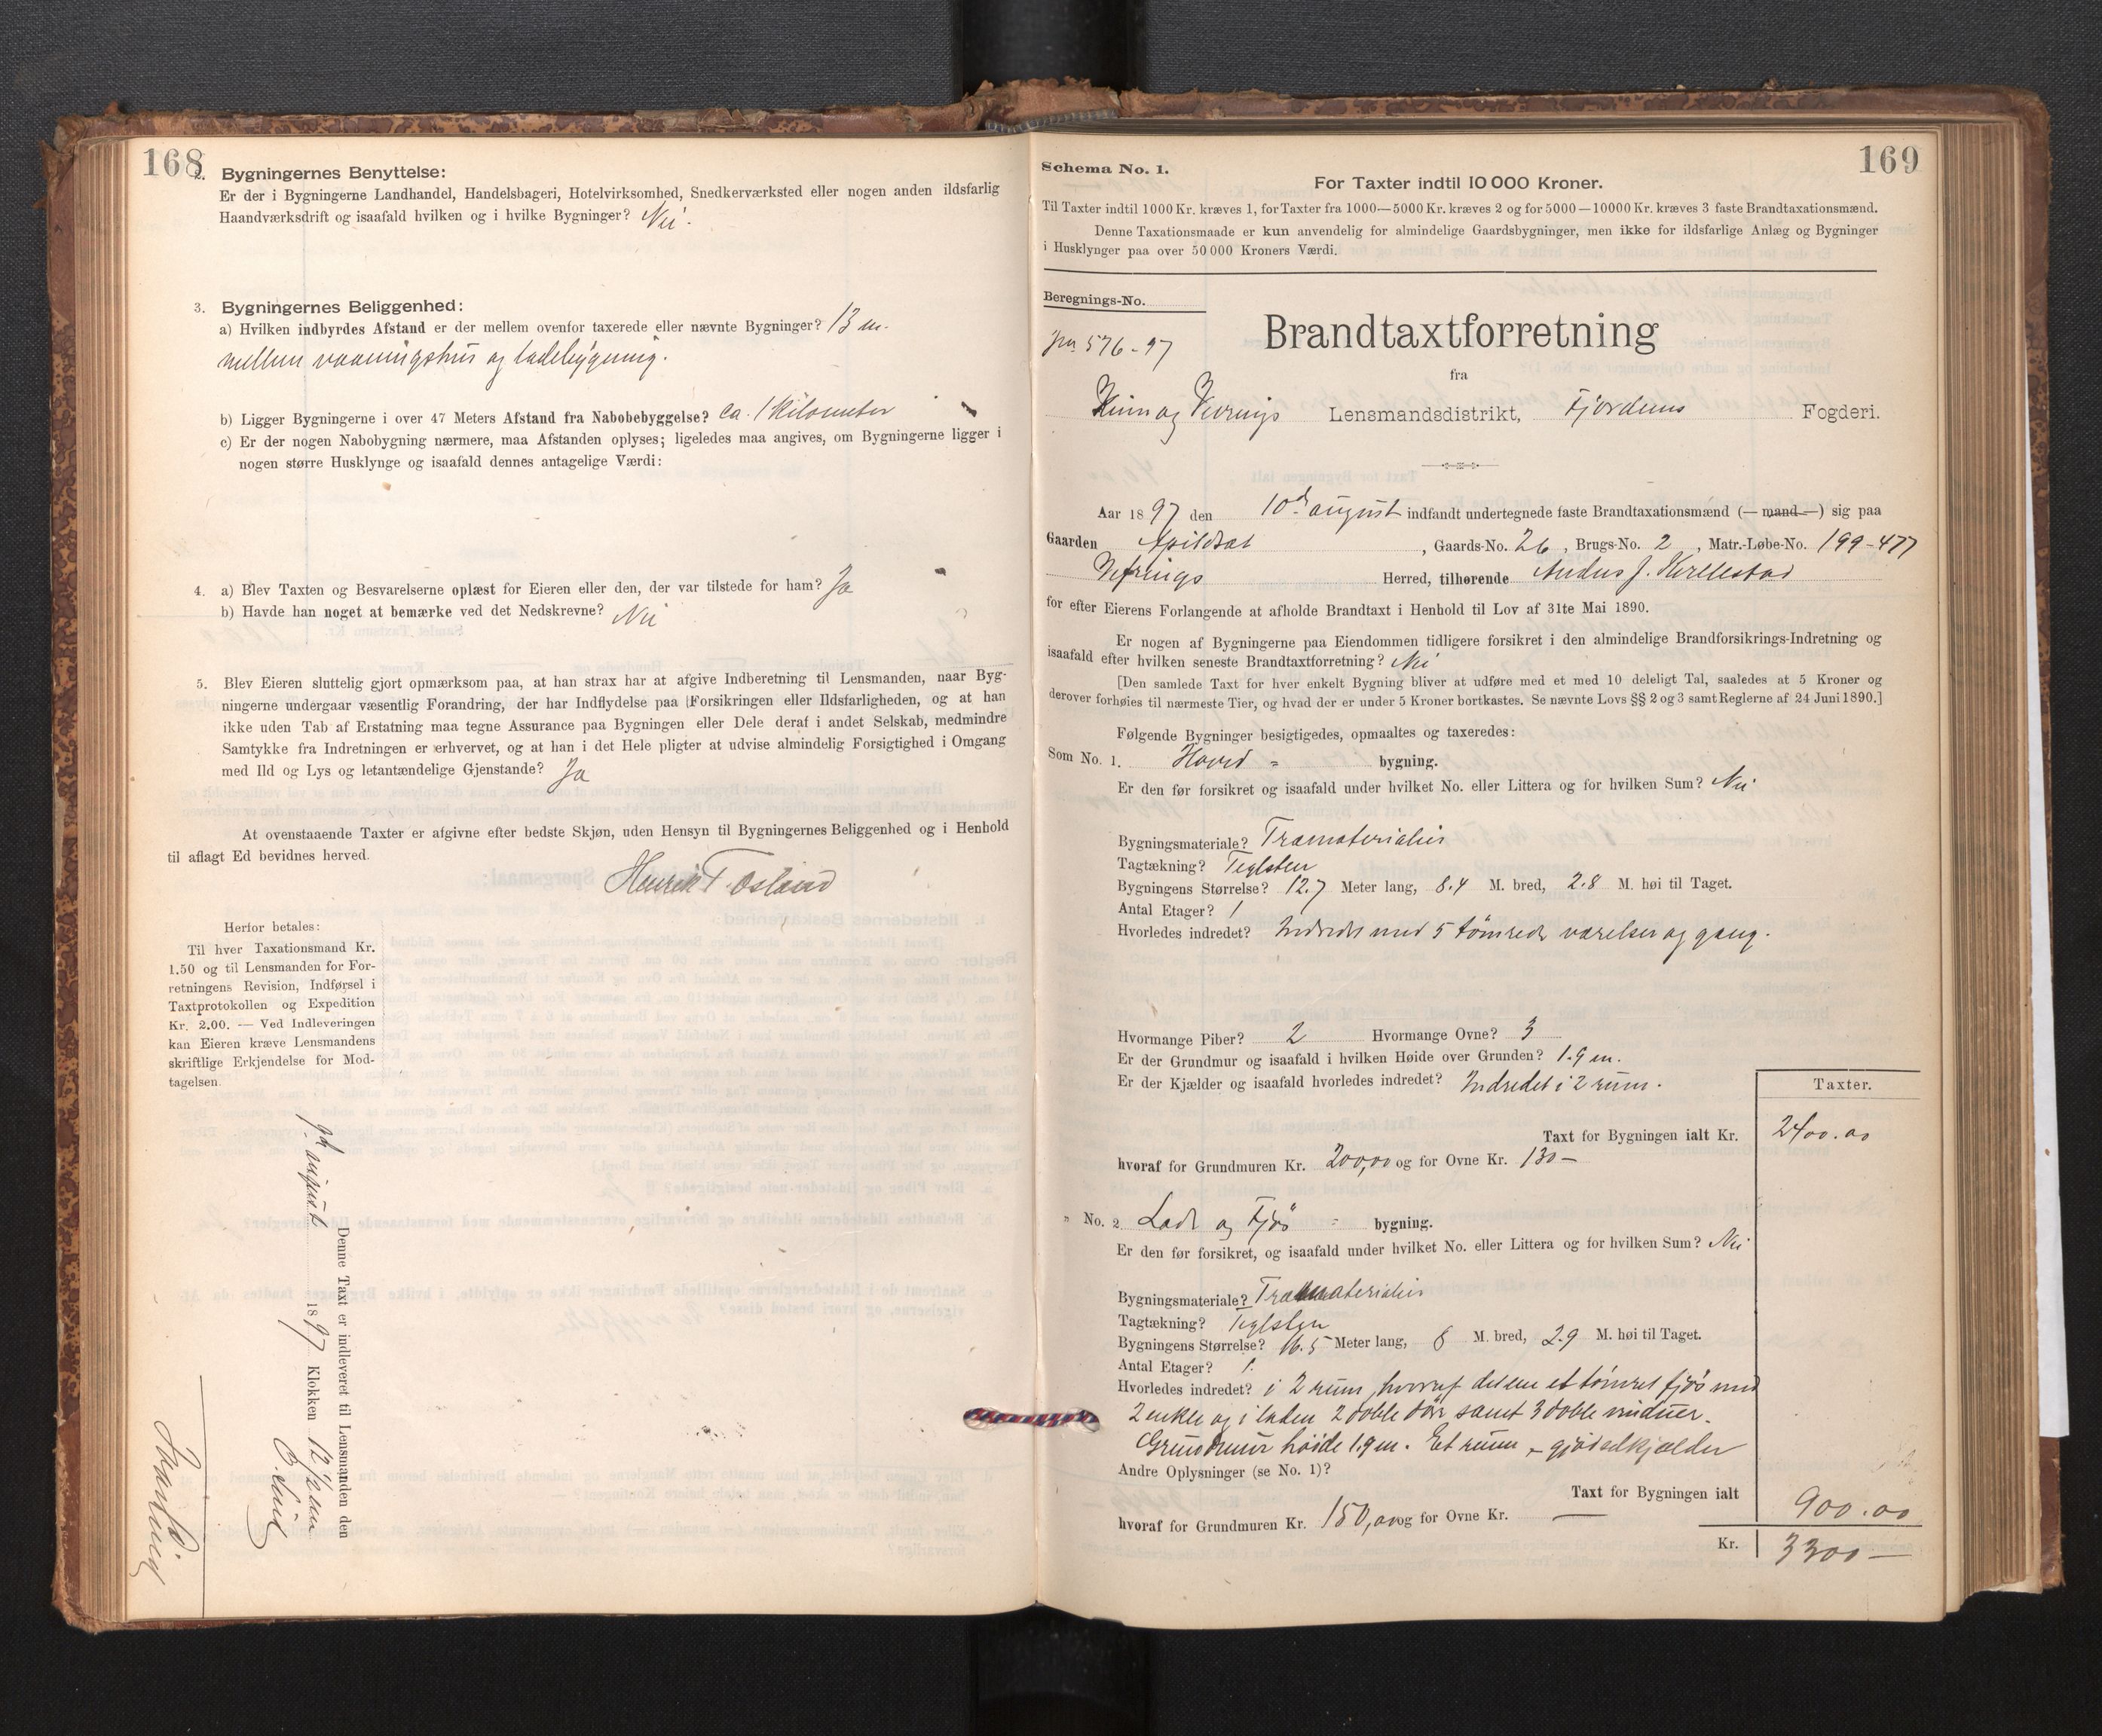 168
2. Bygningernes Benyttelse:
Er der i Bygningerne Landhandel, Handelsbageri, Hotelvirksomhed, Snedkerværksted eller nogen anden ildsfarlig
Haandværksdrift og isaafald hvilken og i hvilke Bygninger? Nei.
3. Bygningernes Beliggenhed:
a) Hvilken indbyrdes Afstand er der mellem ovenfor taxerede eller nævnte Bygninger? 13 m.
mellem vaaningshus og ladebygning.
b) Ligger Bygningerne i over 47 Meters Afstand fra Nabobebyggelse? ca. 1 kilometer
c) Er der nogen Nabobygning nærmere, maa Afstanden oplyses; ligeledes maa angives, om Bygningerne ligger i
nogen større Husklynge og isaafald dennes antagelige Værdi:
4. a) Blev Taxten og Besvarelserne oplæst for Eieren eller den, der var tilstede for ham? Ja
b) Havde han noget at bemærke ved det Nedskrevne? Nei
5. Blev Eieren sluttelig gjort opmærksom paa, at han strax har at afgive Indberetning til Lensmanden, naar Byg-
ningerne undergaar væsentlig Forandring, der har Indflydelse paa Forsikringen eller Ildsfarligheden, og at han
ikke uden Tab af Erstatning maa tegne Assurance paa Bygningen eller Dele deraf i andet Selskab, medmindre
Samtykke fra Indretningen er erhvervet, og at han i det Hele pligter at udvise almindelig Forsigtighed i Omgang
med Ild og Lys og letantændelige Gjenstande? Ja
At ovenstaaende Taxter er afgivne efter bedste Skjøn, uden Hensyn til Bygningernes Beliggenhed og i Henhold
til aflagt Ed bevidnes herved.
Henrik T. Osland
Herfor betales:
Til hver Taxationsmand Kr.
1.50 og til Lensmanden for For-
retningens Revision, Indførsel i
Taxtprotokollen og Expedition
Kr. 2.00. — Ved Indleveringen
kan Eieren kræve Lensmandens
skriftlige Erkjendelse for Mod-
tagelsen.
Denne Taxt er indleveret til Lensmanden den
august 1897 Klokken 12 1/2
169
Schema No. 1.
For Taxter indtil 10 000 Kroner.
Til Taxter indtil 1000 Kr. kræves 1, for Taxter fra 1000—5000 Kr. kræves 2 og for 5000—10000 Kr. kræves 3 faste Brandtaxationsmænd.
Denne Taxationsmaade er kun anvendelig for almindelige Gaardsbygninger, men ikke for ildsfarlige Anlæg og Bygninger
i Husklynger paa over 50 000 Kroners Værdi.
Beregnings-No.
Jrn. 576-97
Brandtaxtforretning
fra
Kinn og Vevrings Lensmandsdistrikt, Fjordens Fogderi.
Aar 1897 den 10de august indfandt undertegnede faste Brandtaxationsmænd (— mand —) sig paa
Gaarden Apildsæt, Gaards-No. 26, Brugs-No. 2, Matr.-Løbe-No. 199-477
Vefrings Herred, tilhørende Anders J.
for efter Eierens Forlangende at afholde Brandtaxt i Henhold til Lov af 31te Mai 1890.
Er nogen af Bygningerne paa Eiendommen tidligere forsikret i den almindelige Brandforsikrings-Indretning og
isaafald efter hvilken seneste Brandtaxtforretning? Nei
[Den samlede Taxt for hver enkelt Bygning bliver at udføre med et med 10 deleligt Tal, saaledes at 5 Kroner og
derover forhøies til nærmeste Tier, og hvad der er under 5 Kroner bortkastes. Se nævnte Lovs §§ 2 og 3 samt Reglerne af 24 Juni 1890.]
Følgende Bygninger besigtigedes, opmaaltes og taxeredes:
Som No. 1. Hoved - bygning.
Er den før forsikret og isaafald under hvilket No. eller Littera og for hvilken Sum? Nei
Bygningsmateriale? Træmaterialier
Tagtækning? Teglsten
Bygningens Størrelse? 12.7 Meter lang, 8.4 M. bred, 2.8 M. høi til Taget.
Antal Etager? 1
Hvorledes indredet? Indredet med 5 tømrede værelser og gang.
Hvormange Piber? 2 Hvormange Ovne? 3
Er der Grundmur og isaafald i hvilken Høide over Grunden? 1.9 m.
Er der Kjælder og isaafald hvorledes indredet? Indredet i 2 rum.
Taxter.
Taxt for Bygningen ialt Kr. 2400.00
hvoraf for Grundmuren Kr. 200,00 og for Ovne Kr. 130 —
" No. 2. Lade og Fjøs - bygning.
Er den før forsikret, og isaafald under hvilket No. eller Littera og for hvilken Sum? Nei
Bygningsmateriale? Træmaterialier
Tagtækning? Teglsten
Bygningens Størrelse? 16.5 Meter lang, 8 M. bred, 2.9 M. høi til Taget.
Antal Etager? 1.
Hvorledes indredet? i 2 rum, hvoraf det ene et tømret fjøs med
2 enkle og i laden 2 doble døre samt 3 doble vinduer.
Grundmur høide 1.9 m. Et rum - gjødselkjælder
Andre Oplysninger (se No. 1)?
Taxt for Bygningen ialt 900.00
hvoraf for Grundmuren Kr. 150,00 og for Ovne Kr. —
Kr. 3300 —